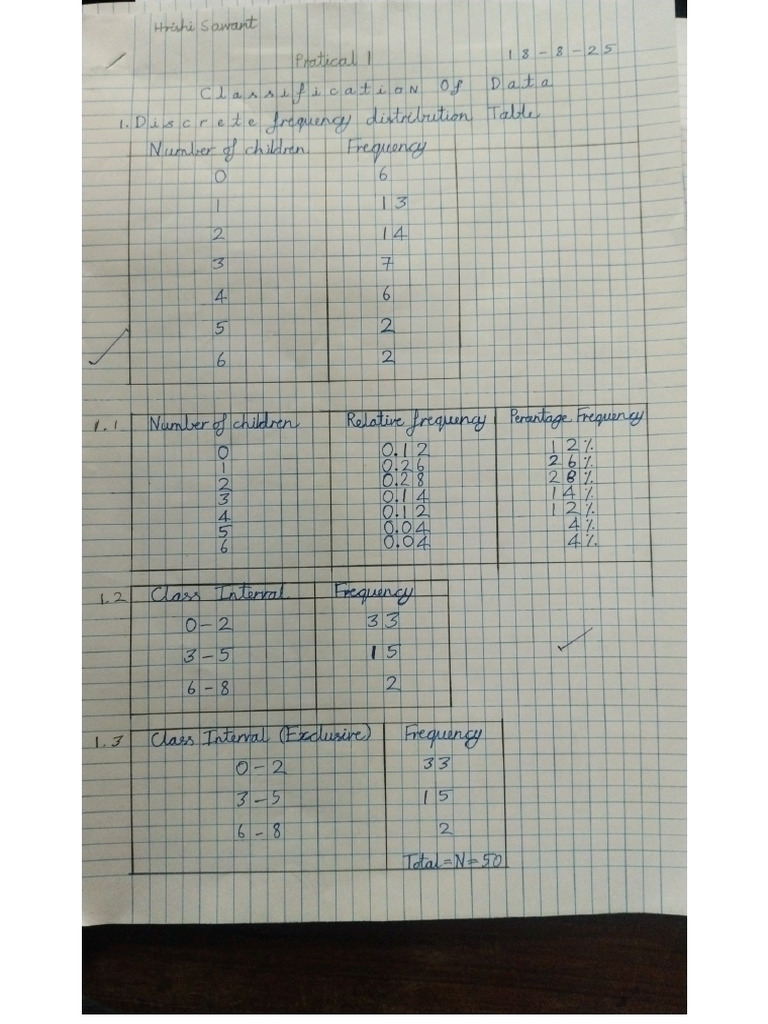 Hrishi Sawant
Pratical 1 18-8-25
Classification Of Data
1. Discrete frequency distribution Table
Number of children Frequency
0 6
1 13
2 14
3 7
4 6
5 2
6 2
1.1 Number of children Relative frequency Perantage Frequency
0 0.12 12%
1 0.26 26%
2 0.28 28%
3 0.14 14%
4 0.12 12%
5 0.04 4%
6 0.04 4%
1.2 Class Interval Frequency
0-2 33
3-5 15
6-8 2
1.3 Class Interval (Exclusive) Frequency
0-2 33
3-5 15
6-8 2
Total=N=50